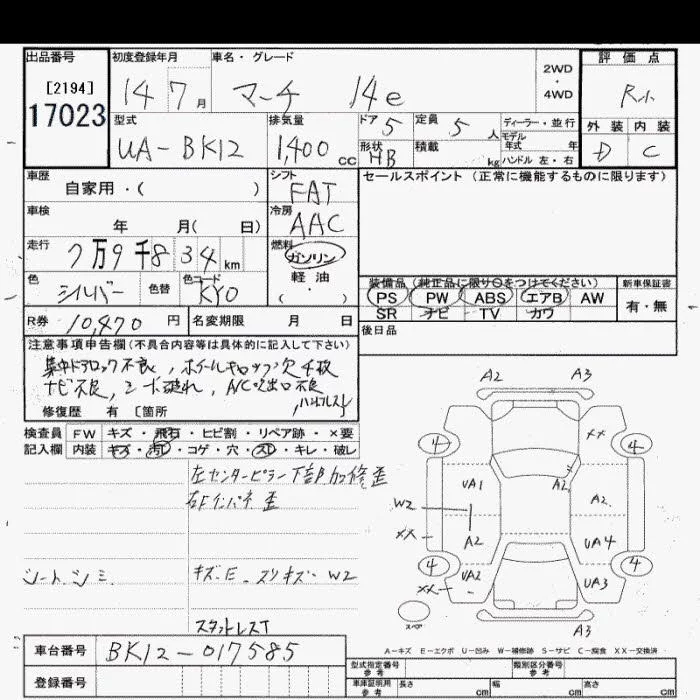 出品番号
[2194]
17023
初度登録年月
14 7 月
車名・グレード
マーチ 14e
2WD
・
4WD
評価点
R小
型式
UA-BK12
排気量
1,400 CC
ドア 5
形状 HB
定員 5 人
積載 kg
ディーラー・並行
モデル
年式 年
ハンドル 左・右
外装 内装
D C
車歴
自家用・( )
シフト
FAT
セールスポイント (正常に機能するものに限ります)
車検
年 月( 日)
冷房
AAC
走行
7万9千834 km
燃料
ガソリン
軽油
( ・ )
色
シルバー
色替
色コード
KY0
装備品 (純正品に限り○をつけてください)
PS PW ABS エアB AW
SR ナビ TV カワ
新車保証書
有・無
R券 10,470 円
名変期限 月 日
後日品
注意事項申告欄(不具合内容等は具体的に記入して下さい)
集中ドアロック不良, ホイールキャップ欠4枚
ナビ不良, シート破れ, A/C吹出口不良
修復歴 有 [箇所
検査員 FW キズ・飛石・ヒビ割・リペア跡・×要
記入欄 内装 キズ・汚レ・コゲ・穴・スレ・キレ・破レ
左センターピラー下部加修歪
右Fインパネ歪
シートシミ
キズ・E スリキズ・W2
スタットレスT
A2 A3
4 XX 4
UA1 A2 A2
W2
XX A2 UA4
4 UA2 UA3 4
XX
スペア
A3
A-キズ E-エクボ U-凹み W-補修跡 S-サビ C-腐食 XX-交換済
車台番号 BK12-017585
登録番号
型式指定番号
参考
類別区分番号
参考
車庫証明用
参考
長さ cm 幅 cm 高さ cm